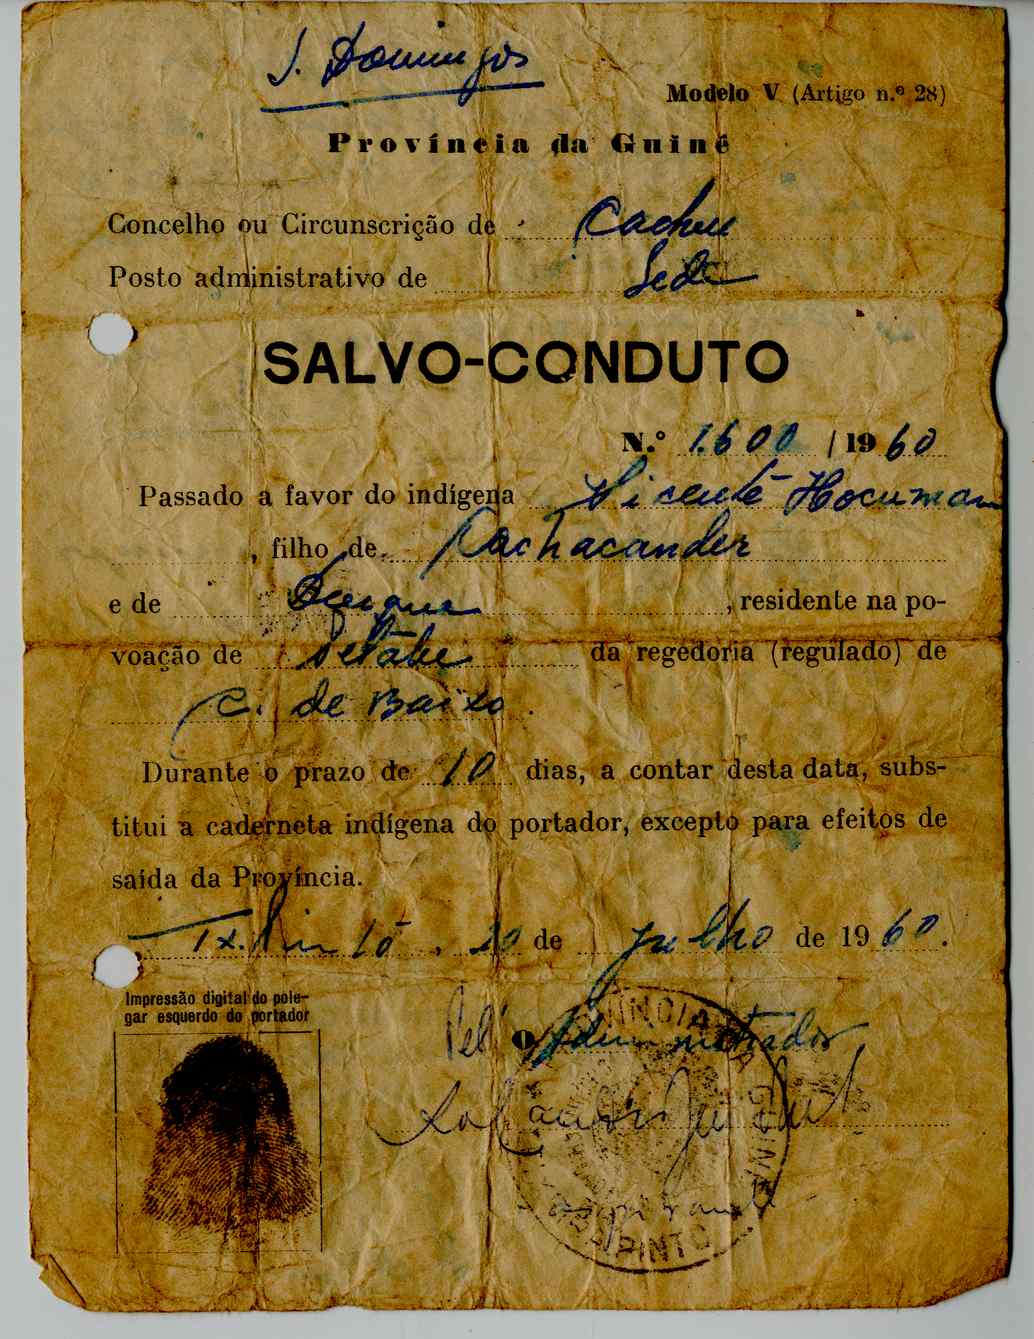 S. Domingos
Modelo V (Artigo n.º 28)
Província da Guiné
Concelho ou Circunscrição de Cacheu
Posto administrativo de Sede
SALVO-CONDUTO
N.º 1.600 / 1960
Passado a favor do indígena Vicente Hocuman
, filho de Cachacander
e de , residente na po-
voação de da regedoria (regulado) de
C. de Baixo
Durante o prazo de 10 dias, a contar desta data, subs-
titui a caderneta indígena do portador, excepto para efeitos de
saída da Província.
Tx. Pinto, 20 de Julho de 1960.
Impressão digital do pole-
gar esquerdo do portador
Pel' O Administrador
PROVÍNCIA DA GUINÉ
PINTO